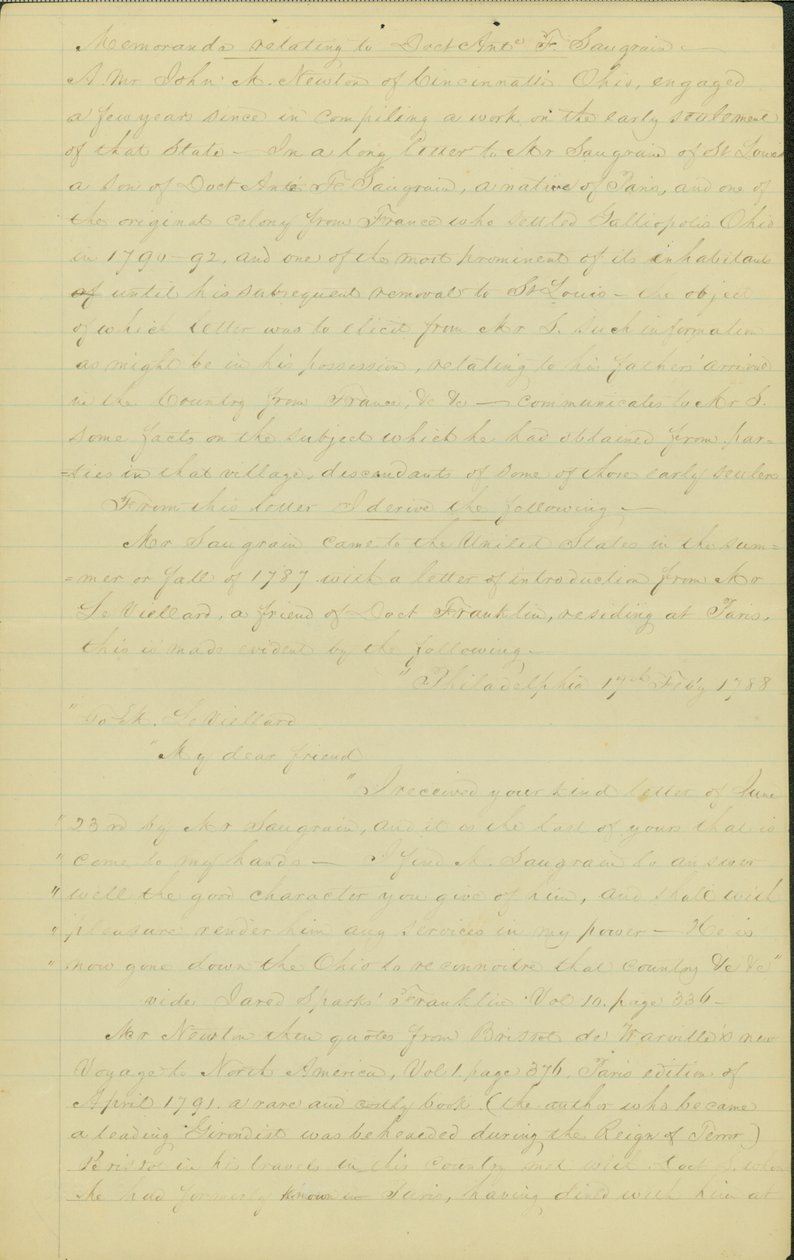 Memoranda relating to Doct Anto F. Saugrain —
A Mr John M. Newton of Cincinnatti Ohio, engaged
a few years since in compiling a work on the early settlement
of that State — In a long letter to Mr Saugrain of St Louis
a son of Doct Ante Fs Saugrain, a native of Paris, and one of
the original colony from France who settled Galliopolis Ohio
in 1790-92, and one of the most prominent of its inhabitants
of until his subsequent removal to St Louis — the object
of which letter was to elicit from Mr S. such information
as might be in his possession, relating to his fathers' arrival
in the Country from France, &c &c — communicates to Mr S.
some facts on the subject which he had obtained from par=
=ties in that village, descendants of some of those early settlers
From this letter I derive the following —
Mr Saugrain came to the United States in the sum=
=mer or fall of 1787 with a letter of introduction from Mr
Le Viellard, a friend of Doct Franklin, residing at Paris,
this is made evident by the following —
" Philadelphia 17th Feby 1788
" To M. Le Viellard
" My dear friend
" I received your kind letter of June
" 23rd by Mr Saugrain, and it is the last of yours that is
" come to my hands — I find M. Saugrain to answer
" well the good character you give of him, and shall with
" pleasure render him any services in my power — He is
" now gone down the Ohio to reconnoitre that country &c &c"
vide Jared Sparks' Franklin Vol 10. page 336 —
Mr Newton then quotes from Brissot de Warville's new
Voyage to North America, Vol 1 page 376. Paris edition of
April 1791. a rare and costly book (the author who became
a leading Girondist was beheaded during the Reign of Terror)
Brissot in his travels in this country met with Doct S. whom
he had formerly known in Paris, having dined with him at